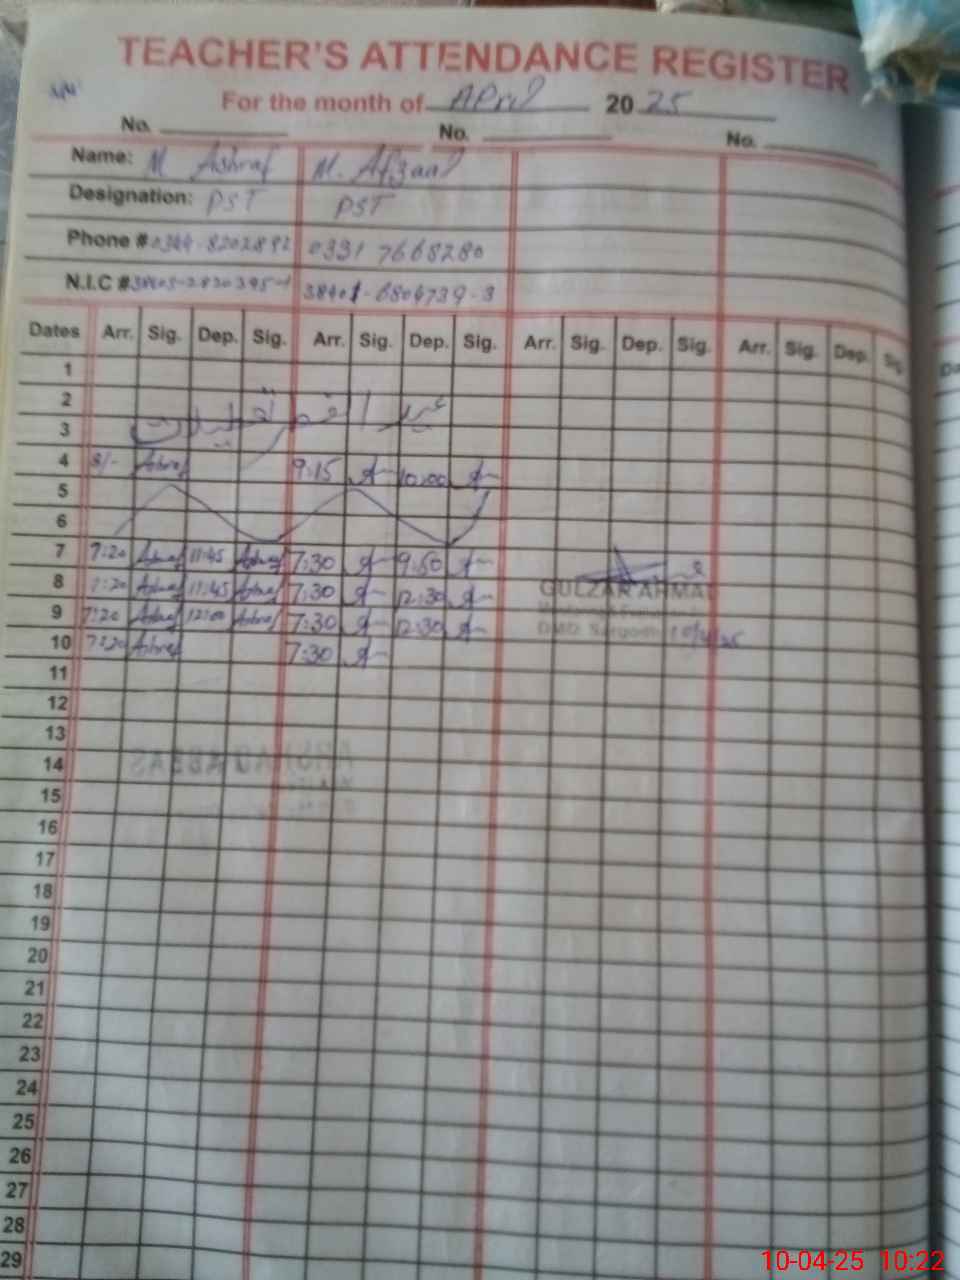 TEACHER'S ATTENDANCE REGISTER
For the month of April 20 25
No. No. No.
Name: M Ashraf M. Afzaal
Designation: PST PST
Phone # 0344-8202892 0331 7668280
N.I.C # 38403-2820395-1 38401-6804739-3
Dates Arr. Sig. Dep. Sig. Arr. Sig. Dep. Sig. Arr. Sig. Dep. Sig. Arr. Sig. Dep. Sig.
1
2
عید الفطر تعطیلات
3
4 8/- Ashraf 9:15 10:00
5
6
7 7:20 Ashraf 11:45 Ashraf 7:30 9:50
8 7:20 Ashraf 11:45 Ashraf 7:30 12:30
GULZAR AHMAD
9 7:20 Ashraf 12:00 Ashraf 7:30 12:30
10 7:20 Ashraf 7:30
11
12
13
14
15
16
17
18
19
20
21
22
23
24
25
26
27
28
29
10-04-25 10:22